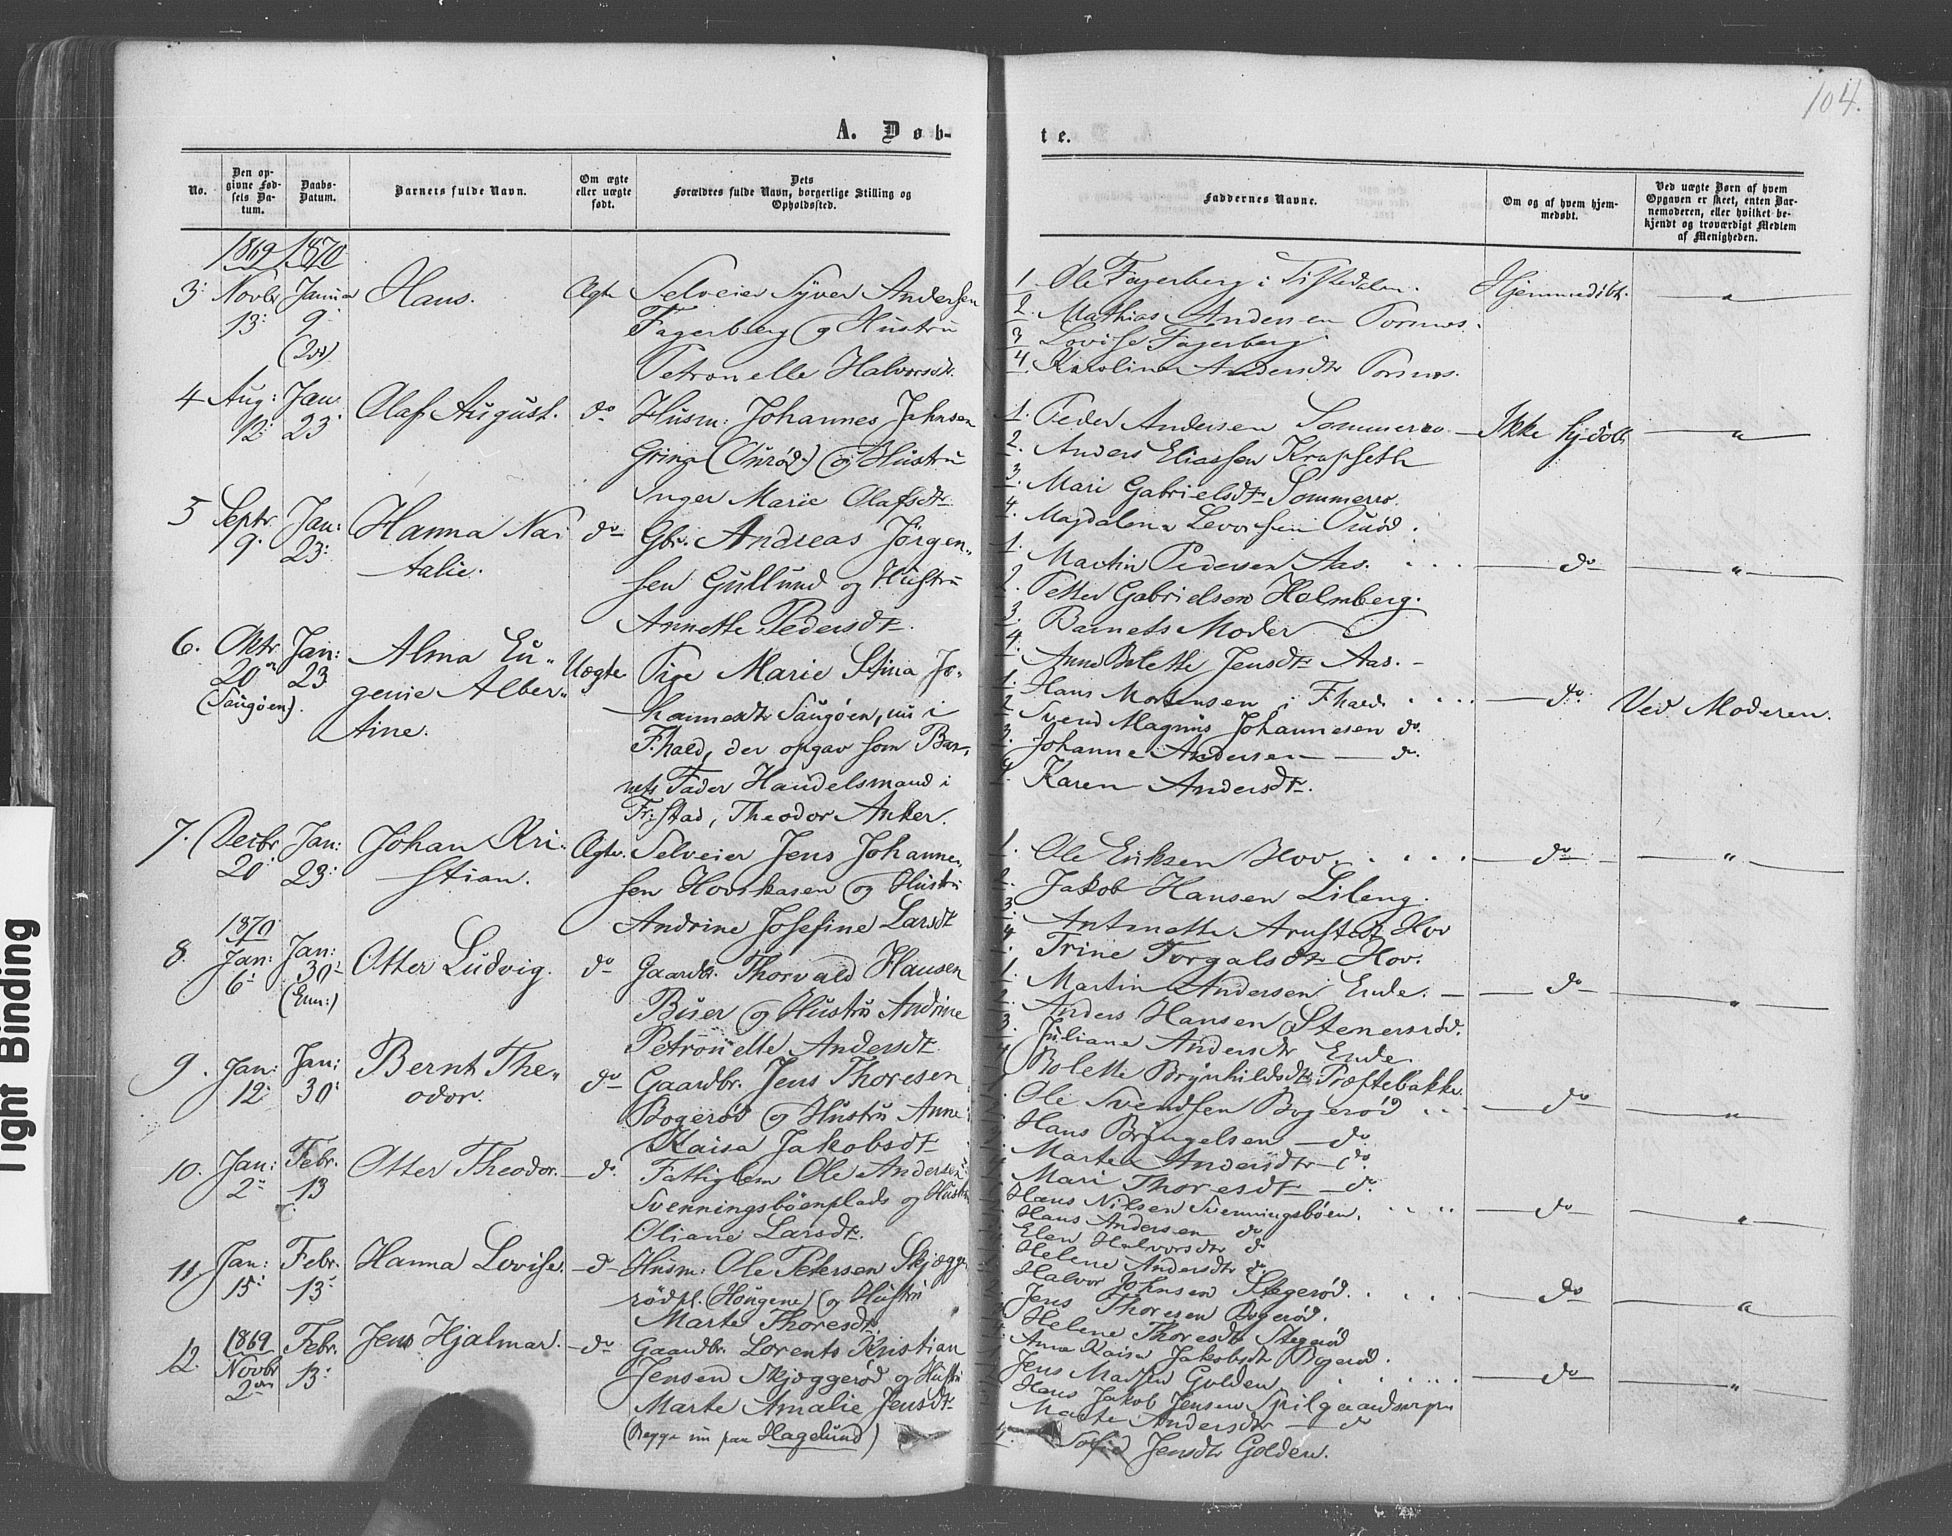 104.
A. Døb-
te.
No.
Den opgivne Fødsels Datum.
Daabs-Datum.
Barnets fulde Navn.
Om ægte eller uægte født.
Dets Forældres fulde Navn, borgerlige Stilling og Opholdssted.
Faddernes Navne.
Om og af hvem hjemmedøbt.
Ved uægte Børn af hvem Opgaven er skeet, enten Barnemoderen, eller hvilket bekjendt og troværdigt Medlem af Menigheden.
1869 1870
3. Novbr 13. Januar 9. Hans. Ægte
Selveier Syver Andersen
Fagerberg og Hustru
Petronelle Halvorsdt.
1. Ole Fagerberg i Tistedalen.
2. Mathias Andersen
3. Lovise Fagerberg
4. Karolina Andersdtr
Hjemmedøbt. "
4 Aug: 12. Jan. 23. Olaf August. do
Husm: Johannes
Gring og Hustru
Inger Marie Olafsdtr
1. Peder Andersen Sommerro
2. Anders Eliassen
3. Mari Gabrielsdtr Sommerro.
4. Magdalena
Ikke hj.døbt "
5 Septr 9. Jan: 23. Hanna Natalie. do
Gbr. Andreas Jørgen-
sen Gullund og Hustru
Annette Pedersdtr
1. Martin Pedersen Aas.
2. Petter Gabrielsen Holmberg.
3. Barnets Moder
4. Anne Bolette Jensdtr Aas.
do "
6. Oktr 20 Jan: 23 Alma Eugenie Albertine. Uægte
(Saugøen).
Pige Marie Stina Jo-
hannesdtr Saugøen, nu i
F:hald, der opgav som Bar-
nets Fader Handelsmand i
Fr:stad, Theodor Anker.
1. Hans Mortensen i F:hald.
2. Svend Magnus Johannesen do
3. Johanne Andersen do
4. Karen Andersdtr.
do Ved Moderen.
7. Decbr 20. Jan: 23. Johan Kristian. Ægte.
Selveier Jens Johanne-
sen Hovskasen og Hustru
Andrine Josefine Larsdtr
1. Ole Eriksen Hov.
2. Jakob Hansen Lileng.
3. Antonette Hov
4. Trine Torgalsdtr Hov.
do "
1870
8. Jan: 6. Jan: 30. Otter Ludvig. do
Gaardbr. Thorvald Hansen
Buer og Hustru Andrine
Petronelle Andersdtr
1. Martin Andersen Ende.
2. Anders Hansen Stenersrød.
3. Juliane Andersdtr Ende.
4. Bolette Brynhildsdtr Præstebakke
do "
9. Jan: 12. Jan: 30. Bernt Theodor. do
Gaardbr. Jens Thoresen
Bogerød og Hustru Anne
Kaisa Jakobsdtr
Ole Svendsen Bogerød
Hans Bryngelsen do
Marte Andersdtr do
Mari Thoresdtr do
do "
10. Jan: 2 Febr. 13 Otter Theodor. do
Fattiglem Ole Andersen
Svenningsbøenplads og Hustru
Oliane Larsdtr.
Hans Nilsen Svenningsbøen.
Hans Andersen do
Elen Halvorsdtr do
Helene Andersdtr do
do "
11. Jan: 15. Febr. 13. Hanna Lovise. do
Husm: Ole Petersen Skjægge-
rødpl. (Hougene) og Hustru
Marte Thoresdtr
Halvor Johnsen Stegerød.
Jens Thoresen Bogerød.
Helene Thoresdtr Stegerød
Anna Kaisa Jakobsdtr Bogerød.
do "
12. 1869 Novbr 2 Febr. 13. Jens Hjalmar. do
Gaardbr. Lorents Kristian
Jensen Skjæggerød og Hustru
Marte Amalie Jensdtr
(Begge nu paa Hagelund)
Jens Madsen Golden
Hans Jakob Jensen
Marte Andersdtr do
4. Sofie Jensdtr Golden.
do "
Tight Binding